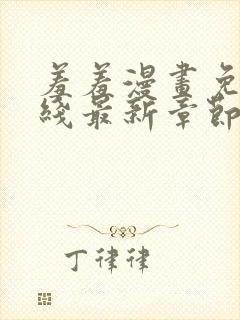 羞羞漫畫免
綫最新章節
丁律律